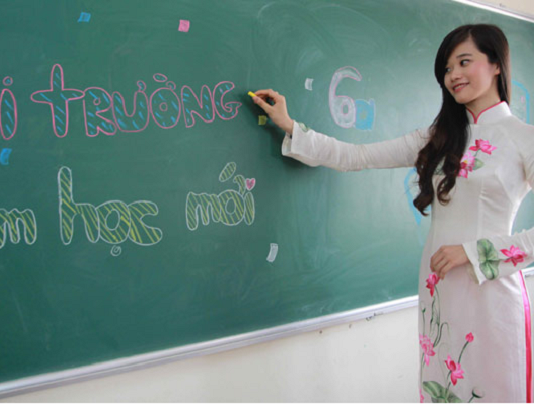 i trường 6
m học mới